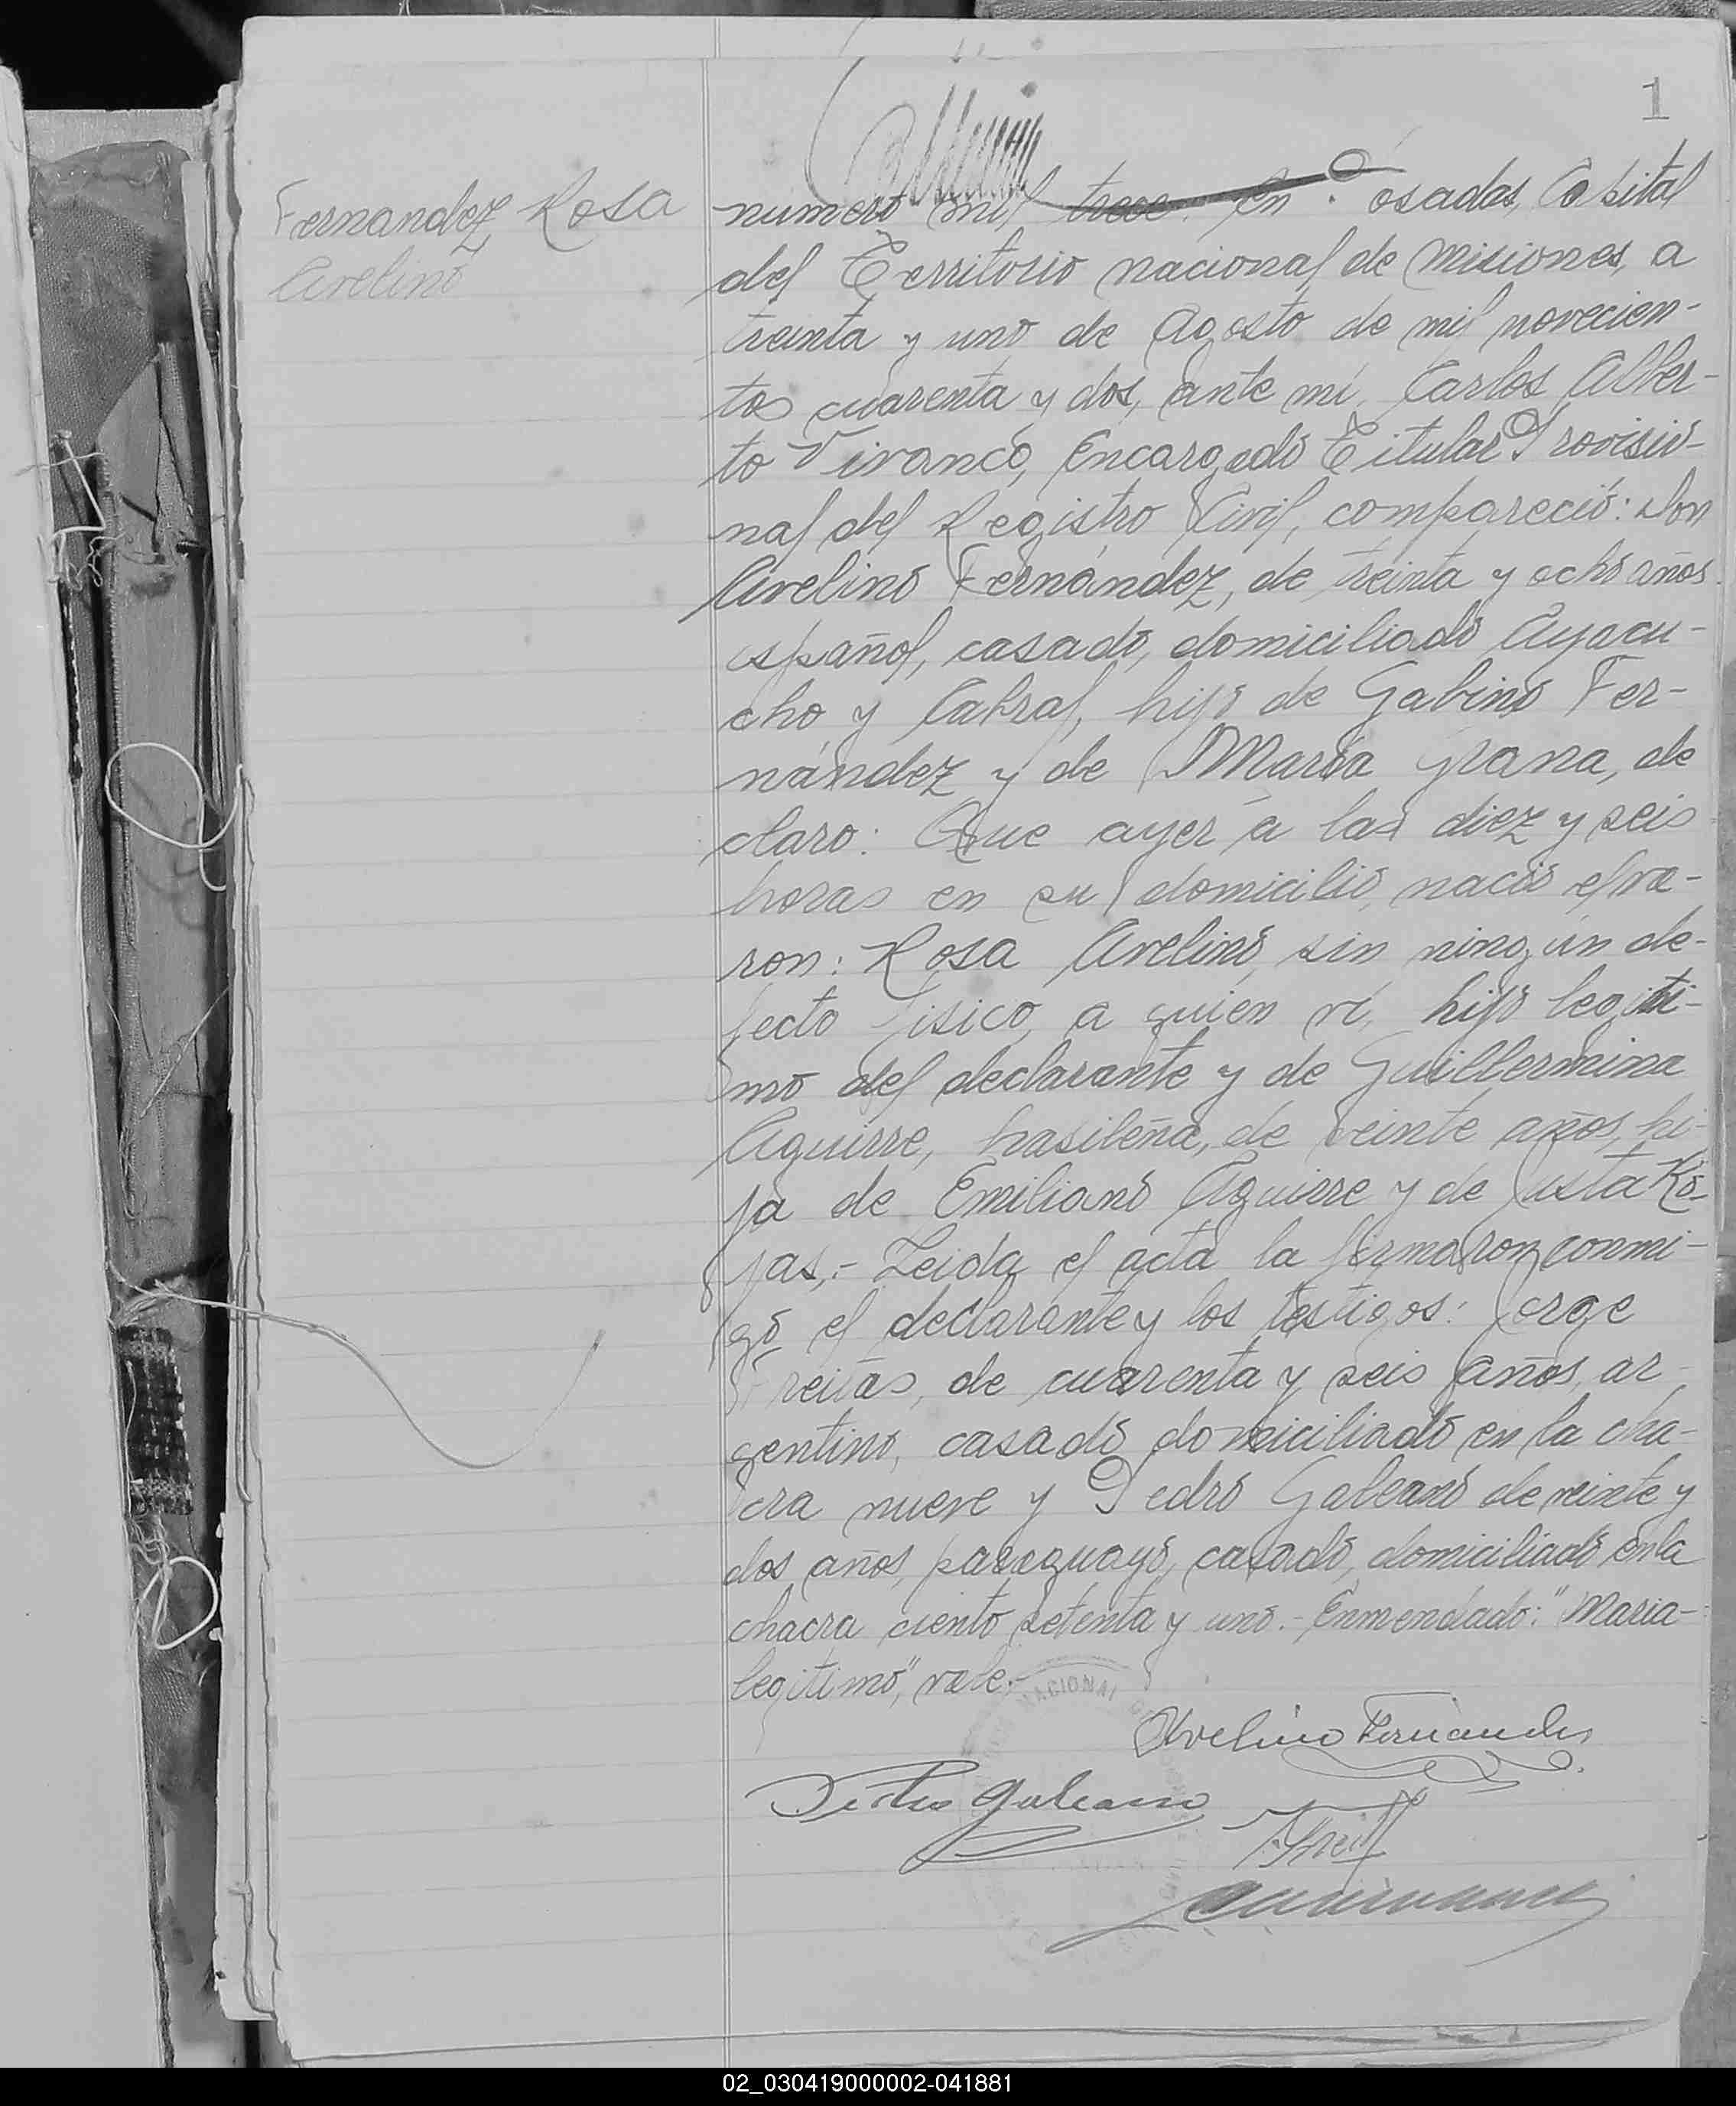 1
Fernandez, Rosa
Avelino
número mil trece. En Posadas, Capital
del Territorio nacional de Misiones, a
treinta y uno de Agosto de mil novecien-
tos cuarenta y dos, ante mí, Carlos Alber-
to Vivanco, Encargado Titular Provisio-
nal del Registro Civil, compareció: Don
Avelino Fernández, de treinta y ocho años
español, casado, domiciliado Ayacu-
cho y Cabral, hijo de Gabino Fer-
nández y de María Grana, de
claro: Que ayer a las diez y seis
horas en su domicilio, nació el va-
ron: Rosa Avelino, sin ningún de-
fecto físico, a quien ví, hijo legiti-
mo del declarante y de Guillermina
Aguirre, brasileña, de veinte años, hi-
ja de Emiliano Aguirre y de Justa Ro-
jas,- Leida el acta la firmaron conmi-
go el declarante y los testigos: Jorge
Freitas, de cuarenta y seis años, ar-
gentino, casado domiciliado en la cha-
cra nueve y Pedro Galeano de veinte y
dos años, paraguayo, casado, domiciliado en la
chacra ciento setenta y uno.- Enmendado: "Maria-
legitimo", vale.-
NACIONAL
Avelino Fernandes
Pedro Galeano
02_030419000002-041881